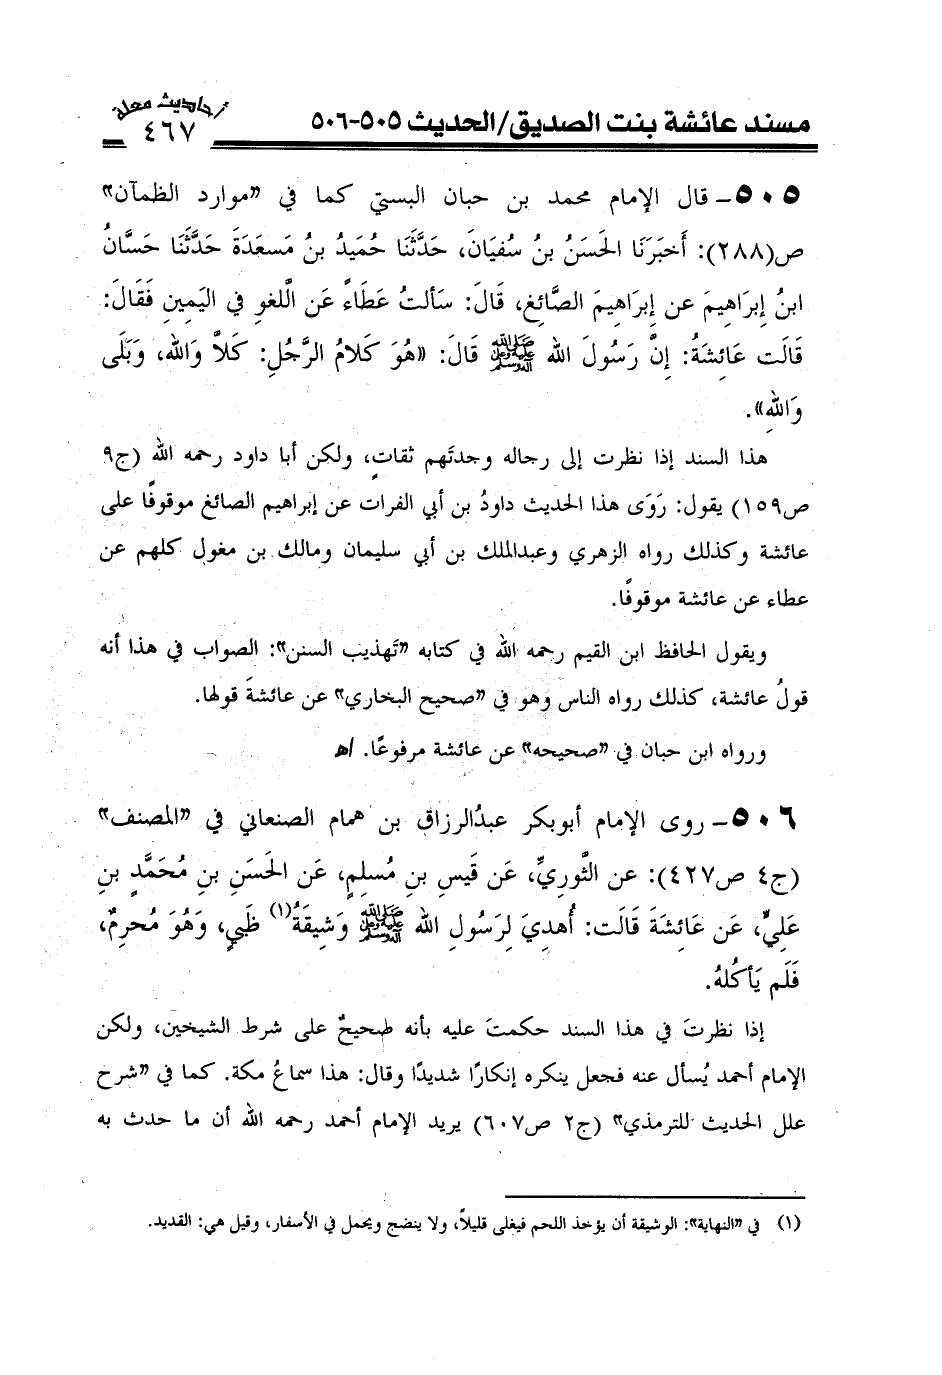 أحاديث معلة
٤٦٧
مسند عائشة بنت الصديق/الحديث ٥٠٥-٥٠٦
٥٠٥- قال الإمام محمد بن حبان البستي كما في «موارد الظمآن»
ص(٢٨٨): أَخبَرَنَا الحَسَنُ بنُ سُفيَانَ، حَدَّثَنَا حُمَيدُ بنُ مَسعَدَةَ حَدَّثَنَا حَسَّانُ
ابنُ إِبرَاهِيمَ عن إِبرَاهِيمَ الصَّائِغِ، قَالَ: سَألتُ عَطَاءً عَن اللَّغوِ في اليَمِينِ فَقَالَ:
قَالَت عَائِشَةُ: إِنَّ رَسُولَ الله ﷺ قَالَ: «هُوَ كَلامُ الرَّجُلِ: كَلاَّ وَالله، وَبَلَى
وَاللهِ».
هذا السند إذا نظرت إلى رجاله وجدتَهم ثقاتٍ، ولكن أبا داود رحمه الله (ج٩
ص١٥٩) يقول: رَوَى هذا الحديث داودُ بن أبي الفرات عن إبراهيم الصائغ موقوفًا على
عائشة وكذلك رواه الزهري وعبدالملك بن أبي سليمان ومالك بن مغول كلهم عن
عطاء عن عائشة موقوفًا.
ويقول الحافظ ابن القيم رحمه الله في كتابه «تَهذيب السنن»: الصواب في هذا أنه
قولُ عائشة، كذلك رواه الناس وهو في «صحيح البخاري» عن عائشةَ قولها.
ورواه ابن حبان في «صحيحه» عن عائشة مرفوعًا. اﻫ
٥٠٦- روى الإمام أبوبكر عبدُالرزاق بن همام الصنعاني في «المصنف»
(ج٤ ص٤٢٧): عن الثَّوريِّ، عَن قَيسِ بنِ مُسلِمٍ، عَن الحَسَنِ بنِ مُحَمَّدِ بنِ
عَلِيٍّ، عَن عَائِشَةَ قَالَت: أُهدِيَ لِرَسُولِ الله ﷺ وَشِيقَةُ(١) ظَبيٍ، وَهُوَ مُحرِمٌ،
فَلَم يَأكُلهُ.
إذا نظرتَ في هذا السند حكمتَ عليه بأنه صحيحٌ على شرط الشيخين، ولكن
الإمام أحمد يُسأل عنه فجعل ينكره إنكارًا شديدًا وقال: هذا سماعُ مكة. كما في «شرح
علل الحديث للترمذي» (ج٢ ص٦٠٧) يريد الإمام أحمد رحمه الله أن ما حدث به
(١) في «النهاية»: الوشيقة أن يؤخذ اللحم فيغلى قليلاً، ولا ينضج ويحمل في الأسفار، وقيل هي: القديد.